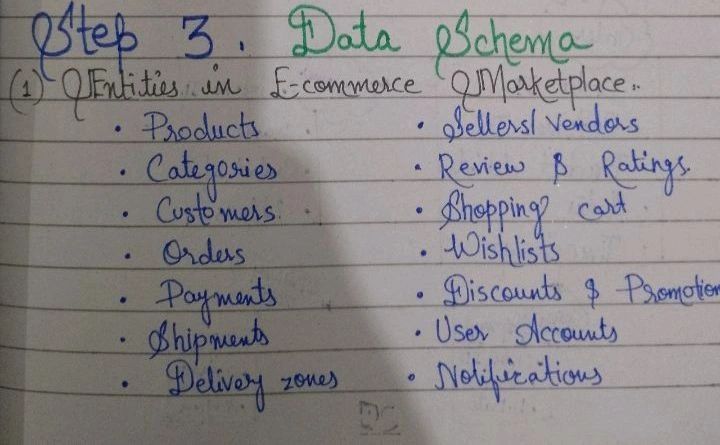 Step 3. Data Schema
(1) Entities in E-commerce Marketplace..
• Products
• Categories
• Customers
• Orders
• Payments
• Shipments
• Delivery zones
• Sellers/ Vendors
• Review & Ratings.
• Shopping cart
• Wishlists
• Discounts & Promotion
• User Accounts
• Notifications